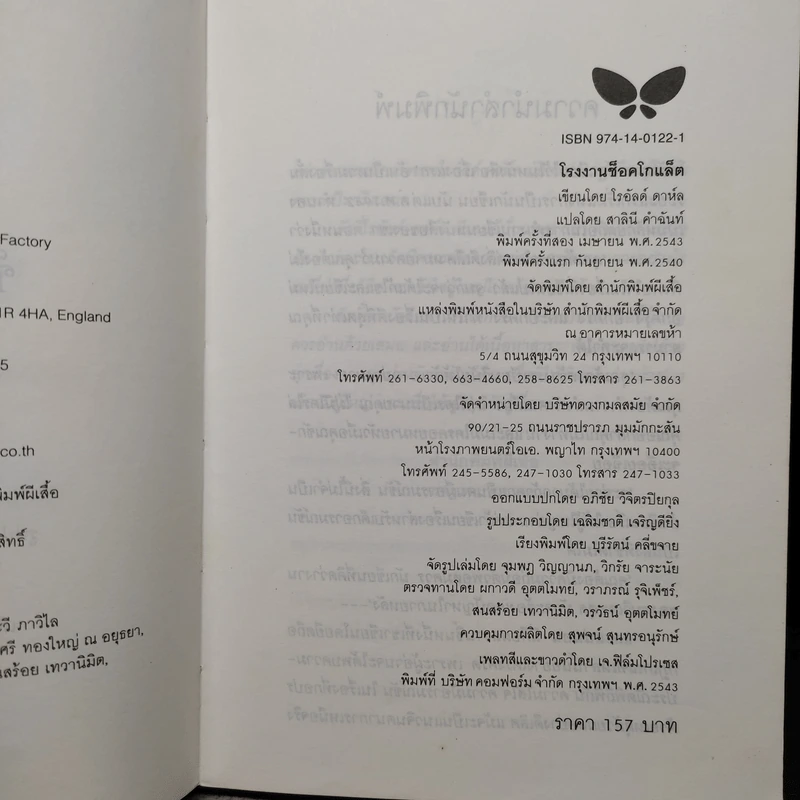 Factory
1R 4HA, England
5
co.th
พิมพ์ผีเสื้อ
สิทธิ์
วี ภาวิไล
ศรี ทองใหญ่ ณ อยุธยา,
นสร้อย เทวานิมิต,
ISBN 974-14-0122-1
โรงงานช็อคโกแล็ต
เขียนโดย โรอัลด์ ดาห์ล
แปลโดย สาลินี คำฉันท์
พิมพ์ครั้งที่สอง เมษายน พ.ศ. 2543
พิมพ์ครั้งแรก กันยายน พ.ศ. 2540
จัดพิมพ์โดย สำนักพิมพ์ผีเสื้อ
แหล่งพิมพ์หนังสือในบริษัท สำนักพิมพ์ผีเสื้อ จำกัด
ณ อาคารหมายเลขห้า
5/4 ถนนสุขุมวิท 24 กรุงเทพฯ 10110
โทรศัพท์ 261-6330, 663-4660, 258-8625 โทรสาร 261-3863
จัดจำหน่ายโดย บริษัทดวงกมลสมัย จำกัด
90/21-25 ถนนราชปรารภ มุมมักกะสัน
หน้าโรงภาพยนตร์โอเอ. พญาไท กรุงเทพฯ 10400
โทรศัพท์ 245-5586, 247-1030 โทรสาร 247-1033
ออกแบบปกโดย อภิชัย วิจิตรปิยกุล
รูปประกอบโดย เฉลิมชาติ เจริญดียิ่ง
เรียงพิมพ์โดย บุรีรัตน์ คลี่ขจาย
จัดรูปเล่มโดย จุมพฏ วิญญานภ, วิกรัย จาระนัย
ตรวจทานโดย ผกาวดี อุตตโมทย์, วราภรณ์ รุจิเพ็ชร์,
สนสร้อย เทวานิมิต, วรวัธน์ อุตตโมทย์
ควบคุมการผลิตโดย สุพจน์ สุนทรอนุรักษ์
เพลทสีและขาวดำโดย เจ.ฟิล์มโปรเซส
พิมพ์ที่ บริษัท คอมฟอร์ม จำกัด กรุงเทพฯ พ.ศ. 2543
ราคา 157 บาท